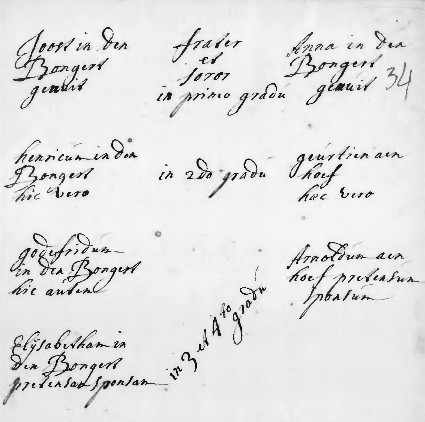 Joost in den
Bongert
genuit
frater
et
soror
in primo gradu
Anna in den
Bongert
genuit
34
henricum in den
Bongert
hic vero
in 2do gradu
geurtien aen
hoef
hæc vero
godefridum
in den Bongert
hic autem
Arnoldum aen
hoef pretensum
sponsum
Elijsabetham in
den Bongert
pretensam sponsam
in 3 et 4to
gradu